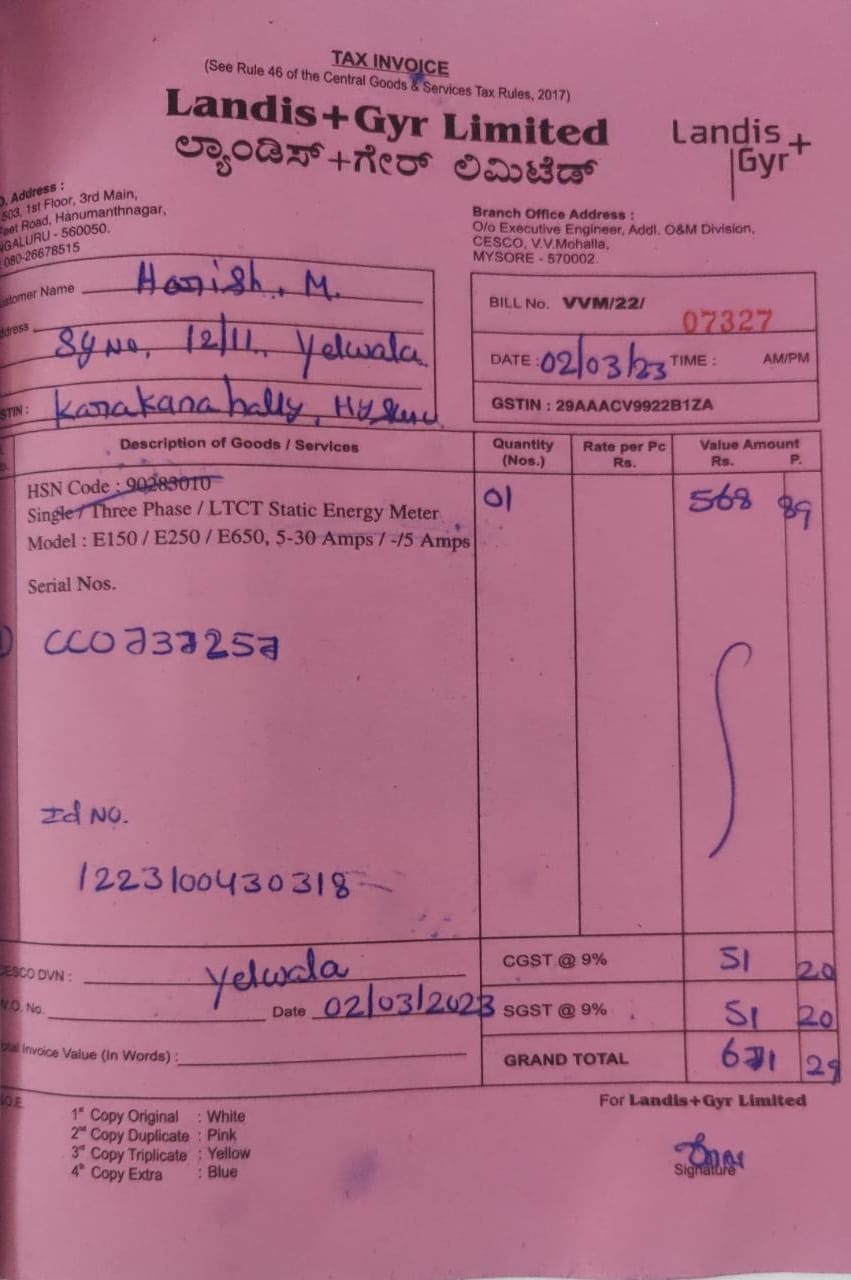 TAX INVOICE
(See Rule 46 of the Central Goods & Services Tax Rules, 2017)
Landis+Gyr Limited
ಲ್ಯಾಂಡಿಸ್+ಗೇರ್ ಲಿಮಿಟೆಡ್
Landis+
Gyr
. Address :
503, 1st Floor, 3rd Main,
eet Road, Hanumanthnagar,
GALURU - 560050.
080-26678515
Branch Office Address :
O/o Executive Engineer, Addl. O&M Division,
CESCO, V.V.Mohalla,
MYSORE - 570002.
ustomer Name Harish. M.
ddress Sy No, 12/11, Yelwala
STIN : Karakanahally,
BILL No. VVM/22/ 07327
DATE : 02/03/23 TIME : AM/PM
GSTIN : 29AAACV9922B1ZA
Description of Goods / Services Quantity (Nos.) Rate per Pc Rs. Value Amount Rs. P.
HSN Code : 90283010
Single / Three Phase / LTCT Static Energy Meter 01 568 89
Model : E150 / E250 / E650, 5-30 Amps / -/5 Amps
Serial Nos.
CCO737257
Id NO.
1223100430318
CESCO DVN : Yelwala CGST @ 9% 51 20
.O. No. Date 02/03/2023 SGST @ 9% 51 20
otal Invoice Value (In Words) : GRAND TOTAL 671 29
.O.E
1st Copy Original : White
2nd Copy Duplicate : Pink
3rd Copy Triplicate : Yellow
4th Copy Extra : Blue
For Landis+Gyr Limited
Signature